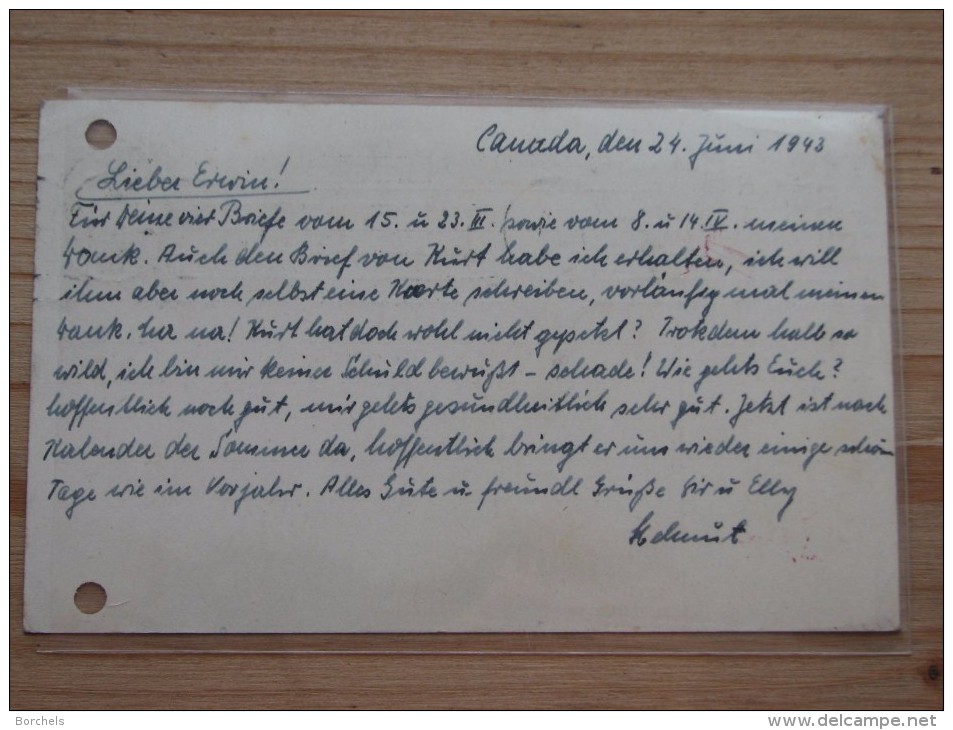 Canada, den 24. Juni 1943
Lieber Erwin!
Für Deine vier Briefe vom 15. u 23. III. sowie vom 8. u 14. IV. meinen
Dank. Auch den Brief von Kurt habe ich erhalten, ich will
ihm aber noch selbst eine Karte schreiben, vorläufig mal meinen
Dank. Na na! Kurt hat doch wohl nicht gepetzt? Trotzdem halb so
wild, ich bin mir keiner Schuld bewußt - schade! Wie gehts Euch?
hoffentlich noch gut, mir gehts gesundheitlich sehr gut. Jetzt ist nach
Kalender der Sommer da, hoffentlich bringt er uns wieder einige schöne
Tage wie im Vorjahr. Alles Gute u. freundl Grüße Dir u Elly
Helmut
Borchels
www.delcampe.net